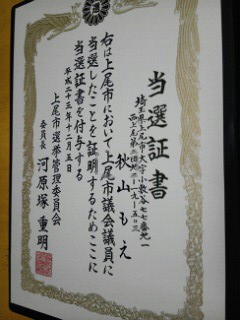 当選証書
埼玉県上尾市大字小敷谷七七番地一
西上尾第二団地三ー一九ー五〇三
秋山もえ
右は上尾市において上尾市議会議員に
当選したことを証明するためここに
当選証書を付与する
平成二十三年十二月五日
上尾市選挙管理委員会
委員長 河原塚重明